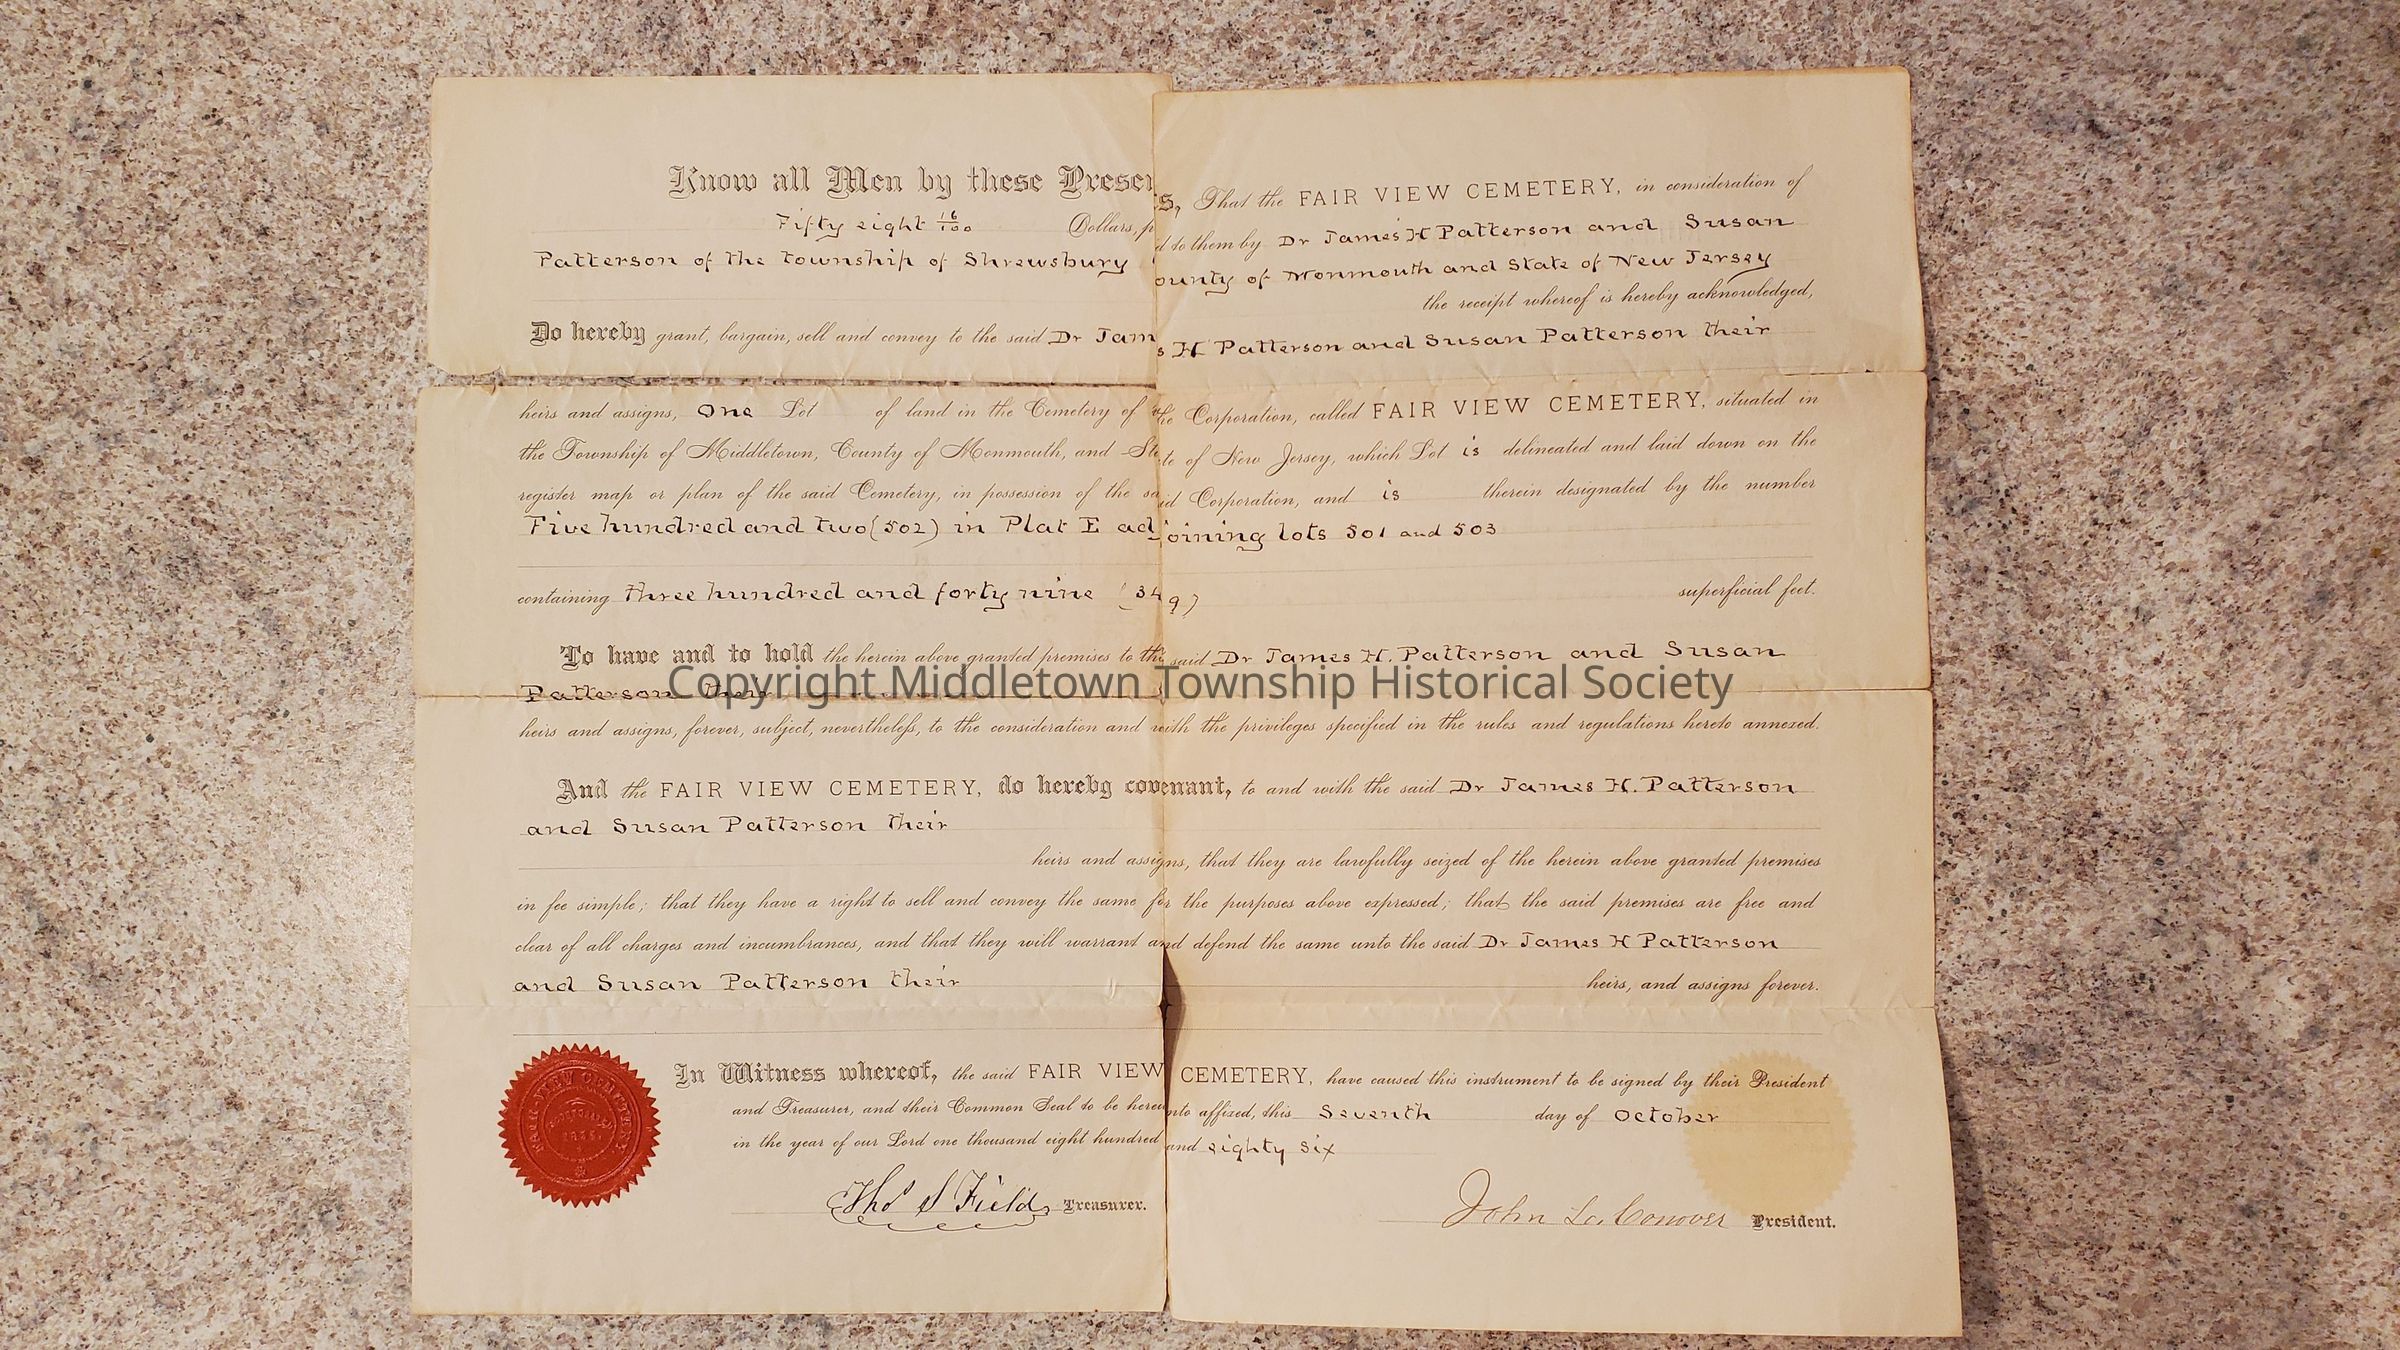 Know all Men by these Presents, That the FAIR VIEW CEMETERY, in consideration of
Fifty eight 16/100 Dollars, p d to them by Dr James H Patterson and Susan
Patterson of the township of Shrewsbury ounty of Monmouth and State of New Jersey
the receipt whereof is hereby acknowledged,
Do hereby grant, bargain, sell and convey to the said Dr James H Patterson and Susan Patterson their
heirs and assigns, One Lot of land in the Cemetery of the Corporation, called FAIR VIEW CEMETERY, situated in
the Township of Middletown, County of Monmouth, and State of New Jersey, which Lot is delineated and laid down on the
register map or plan of the said Cemetery, in possession of the said Corporation, and is therein designated by the number
Five hundred and two (502) in Plat E adjoining lots 501 and 503
containing three hundred and forty nine (349) superficial feet.
To have and to hold the herein above granted premises to the said Dr James H. Patterson and Susan
Patterson their
heirs and assigns, forever, subject, nevertheless, to the consideration and with the privileges specified in the rules and regulations hereto annexed.
And the FAIR VIEW CEMETERY, do hereby covenant, to and with the said Dr James H. Patterson
and Susan Patterson their
heirs and assigns, that they are lawfully seized of the herein above granted premises
in fee simple; that they have a right to sell and convey the same for the purposes above expressed; that the said premises are free and
clear of all charges and incumbrances, and that they will warrant and defend the same unto the said Dr James H Patterson
and Susan Patterson their heirs, and assigns forever.
In Witness whereof, the said FAIR VIEW CEMETERY, have caused this instrument to be signed by their President
and Treasurer, and their Common Seal to be hereunto affixed, this Seventh day of October
in the year of our Lord one thousand eight hundred and eighty six
Thos S Field, Treasurer.
John L. Conover President.
FAIR VIEW CEMETERY
Copyright Middletown Township Historical Society